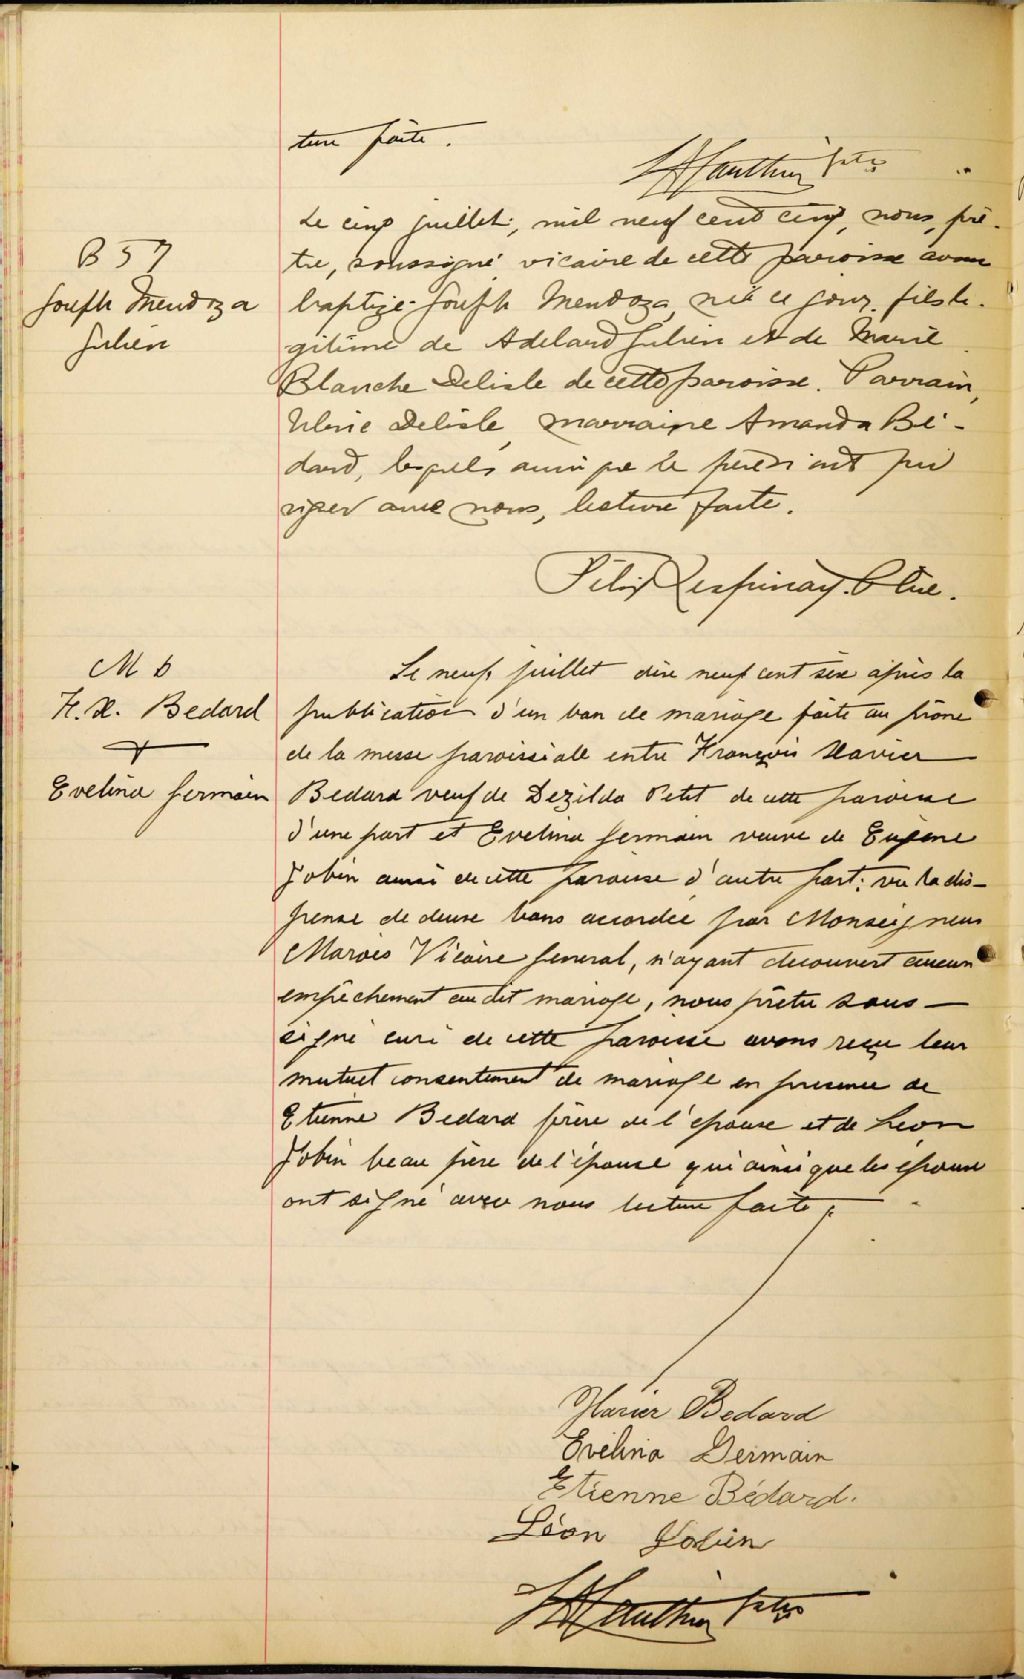 ture faite.
Gauthier ptre
B 57
Joseph Mendoza
Julien
Le cinq juillet, mil neuf cent cinq, nous, prê-
tre, soussigné, vicaire de cette paroisse avons
baptizé Joseph Mendoza, né ce jour, fils lé-
gitime de Adelard Julien et de Marie
Blanche Delisle de cette paroisse. Parrain,
Ulric Delisle, marraine Amanda Bé-
dard, lesquels ainsi que le père ont pu
signer avec nous, lecture faite.
Félix Lespinay. Ptre.
M 6
F. X. Bedard
+
Evelina Germain
Le neuf juillet dix neuf cent six après la
publication d'un ban de mariage faite au prône
de la messe paroissiale entre François Xavier
Bedard veuf de Dezilda Petit de cette paroisse
d'une part et Evelina Germain veuve de Eugene
Jobin aussi de cette paroisse d'autre part; vu la dis-
pense de deux bans accordée par Monseigneur
Marois Vicaire General, n'ayant decouvert aucun
empêchement au dit mariage, nous prêtre sous-
signé curé de cette paroisse avons reçu leur
mutuel consentement de mariage en presence de
Etienne Bedard frère de l'epoux et de Leon
Jobin beau frère de l'épouse qui ainsi que les époux
ont signé avec nous lecture faite.
Xavier Bedard
Evélina Germain
Etienne Bédard.
Léon Jobin
Gauthier ptre